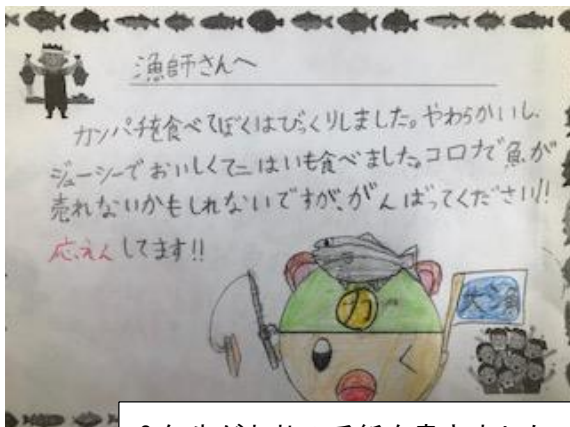 漁師さんへ
カンパチを食べてぼくはびっくりしました。やわらかいし、
ジューシーでおいしくて二はいも食べました。コロナで魚が
売れないかもしれないですが、がんばってください!!
応えんしてます!!
力
大漁